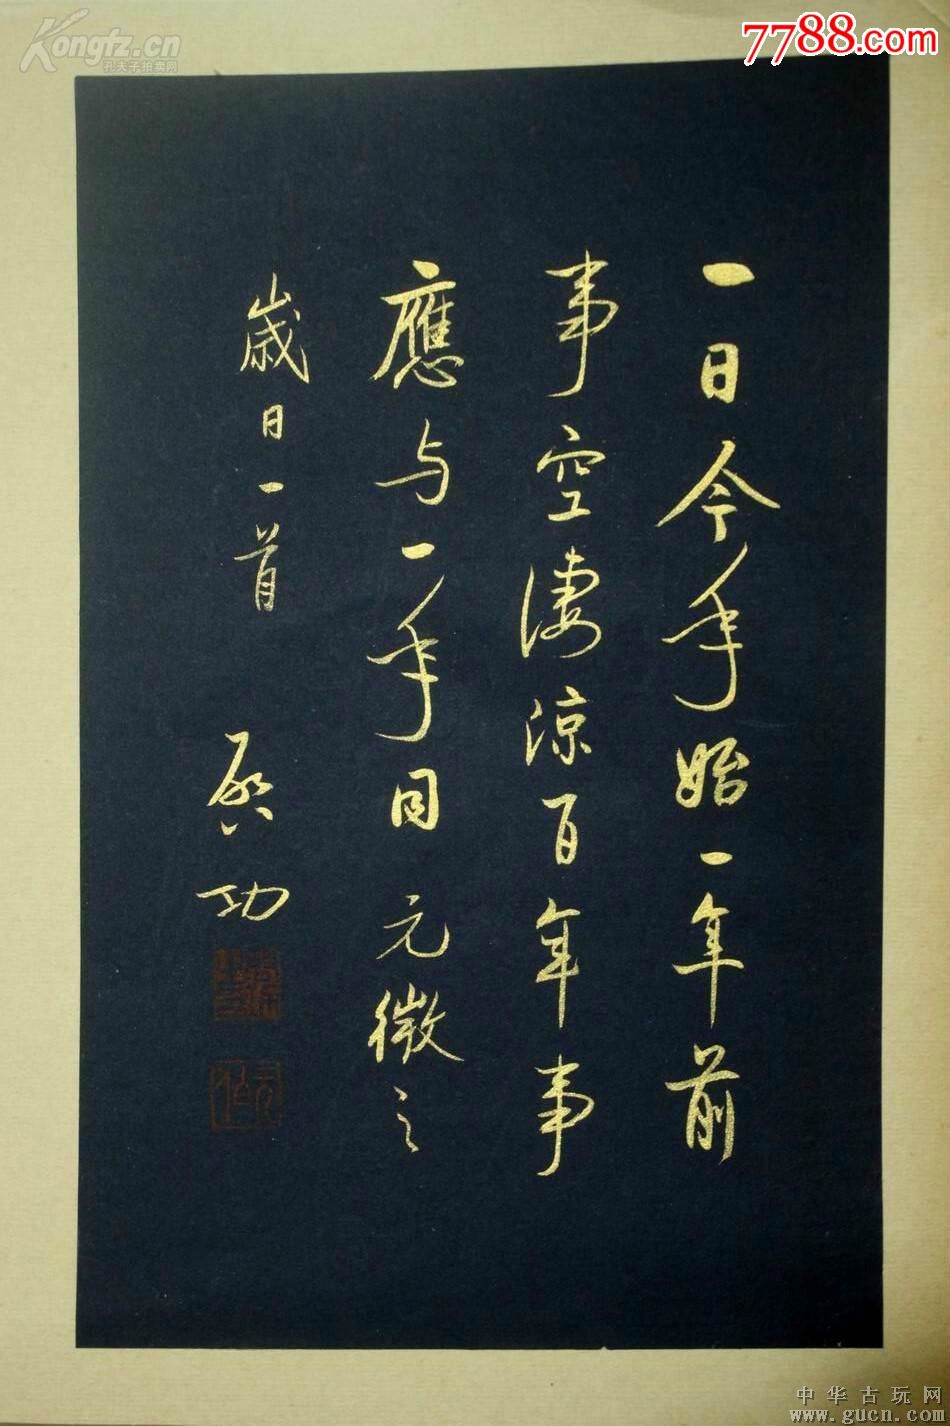 Kongfz.cn
孔夫子拍卖网
7788.com
一日今年始一年前
事空淒涼百年事
應与一年同元微之
歲日一首
启功
中华古玩网
www.gucn.com